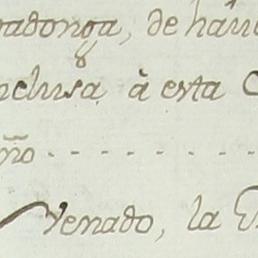 vadonga, de hav
nclusa à esta C
ño - - - - - - - - -
Venado, la